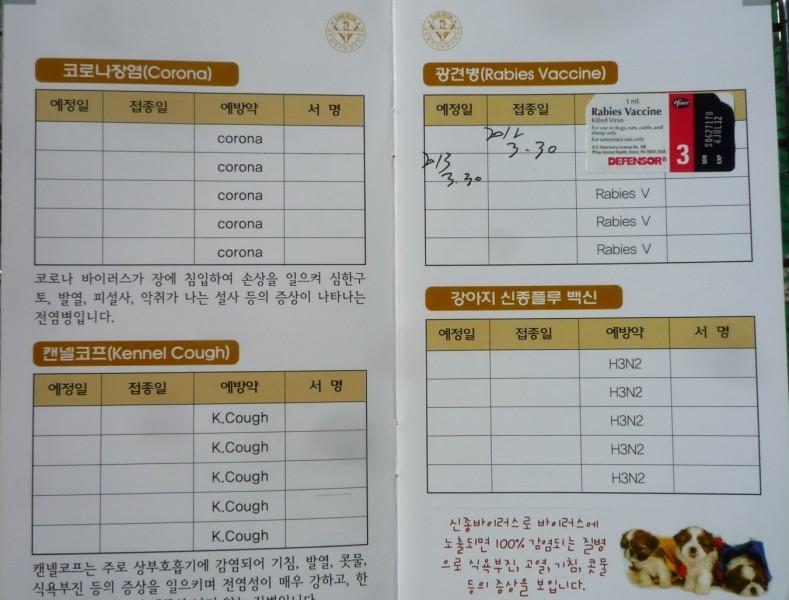 코로나장염(Corona)
예정일 접종일 예방약 서 명
corona
corona
corona
corona
corona
코로나 바이러스가 장에 침입하여 손상을 일으켜 심한구
토, 발열, 피설사, 악취가 나는 설사 등의 증상이 나타나는
전염병입니다.
캔넬코프(Kennel Cough)
예정일 접종일 예방약 서 명
K.Cough
K.Cough
K.Cough
K.Cough
K.Cough
캔넬코프는 주로 상부호흡기에 감염되어 기침, 발열, 콧물,
식욕부진 등의 증상을 일으키며 전염성이 매우 강하고, 한
광견병(Rabies Vaccine)
예정일 접종일
1 mL
Rabies Vaccine
Killed Virus
For use in dogs, cats, cattle, and
sheep only
For veterinary use only
U.S. Veterinary License No. 189
Pfizer Animal Health, Exton, PA 19341, USA
DEFENSOR® 3
Pfizer
SER S0627178
EXP 4JUL12
2012
3.30
2013
3.30
Rabies V
Rabies V
Rabies V
강아지 신종플루 백신
예정일 접종일 예방약 서 명
H3N2
H3N2
H3N2
H3N2
H3N2
신종바이러스로 바이러스에
노출되면 100% 감염되는 질병
으로 식욕부진, 고열, 기침, 콧물
등의 증상을 보입니다.